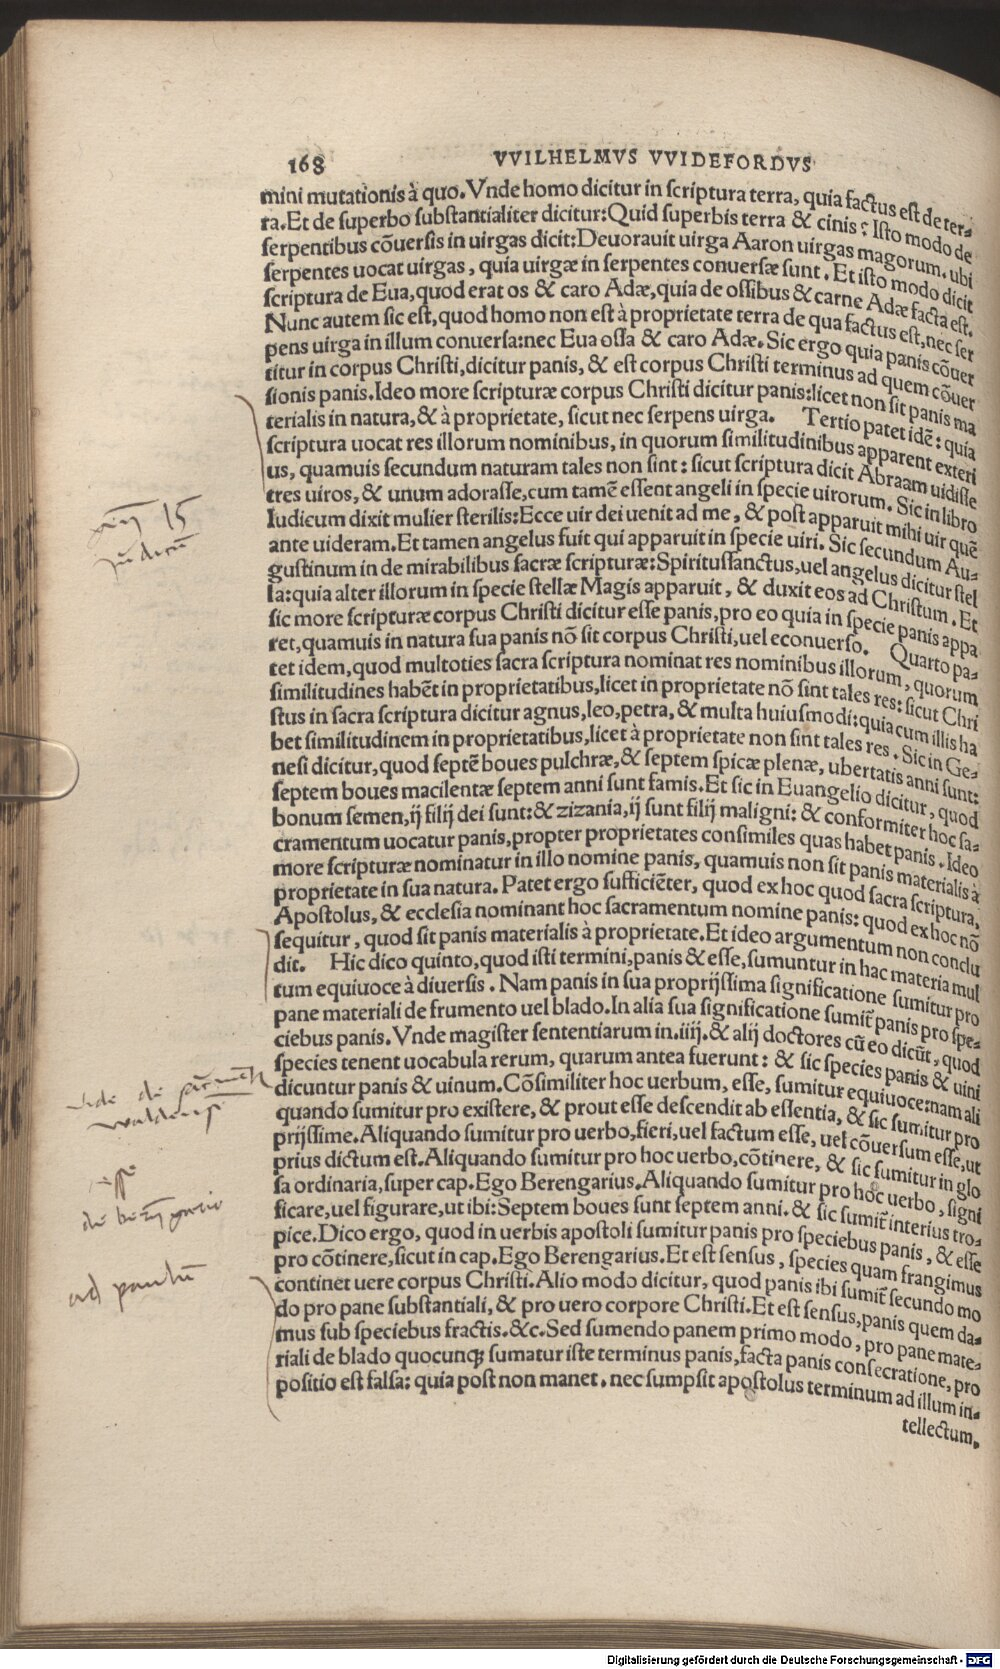 168 VVILHELMVS VVIDEFORDVS
mini mutationis à quo. Vnde homo dicitur in scriptura terra, quia factus est de ter-
ra. Et de superbo substantialiter dicitur: Quid superbis terra & cinis? Isto modo de
serpentibus cõuersis in uirgas dicit: Deuorauit uirga Aaron uirgas magorum. ubi
serpentes uocat uirgas, quia uirgæ in serpentes conuersæ sunt. Et isto modo dicit
scriptura de Eua, quod erat os & caro Adæ, quia de ossibus & carne Adæ facta est.
Nunc autem sic est, quod homo non est à proprietate terra de qua factus est, nec ser
pens uirga in illum conuersa: nec Eua ossa & caro Adæ. Sic ergo quia panis cõuer
titur in corpus Christi, dicitur panis, & est corpus Christi terminus ad quem cõuer
sionis panis. Ideo more scripturæ corpus Christi dicitur panis: licet non sit panis ma
terialis in natura, & à proprietate, sicut nec serpens uirga. Tertio patet idẽ: quia
scriptura uocat res illorum nominibus, in quorum similitudinibus apparent exteri
us, quamuis secundum naturam tales non sint: sicut scriptura dicit Abraam uidisse
tres uiros, & unum adorasse, cum tamẽ essent angeli in specie uirorum. Sic in libro
Iudicum dixit mulier sterilis: Ecce uir dei uenit ad me, & post apparuit mihi uir quẽ
ante uideram. Et tamen angelus fuit qui apparuit in specie uiri. Sic secundum Au-
gustinum in de mirabilibus sacræ scripturæ: Spiritussanctus, uel angelus dicitur stel
la: quia alter illorum in specie stellæ Magis apparuit, & duxit eos ad Christum. Et
sic more scripturæ corpus Christi dicitur esse panis, pro eo quia in specie panis appa
ret, quamuis in natura sua panis nõ sit corpus Christi, uel econuerso. Quarto pa-
tet idem, quod multoties sacra scriptura nominat res nominibus illorum, quorum
similitudines habẽt in proprietatibus, licet in proprietate nõ sint tales res: sicut Chri
stus in sacra scriptura dicitur agnus, leo, petra, & multa huiusmodi: quia cum illis ha
bet similitudinem in proprietatibus, licet à proprietate non sint tales res. Sic in Ge-
nesi dicitur, quod septẽ boues pulchræ, & septem spicæ plenæ, ubertatis anni sunt:
septem boues macilentæ septem anni sunt famis. Et sic in Euangelio dicitur, quod
bonum semen, ij filij dei sunt: & zizania, ij sunt filij maligni: & conformiter hoc sa-
cramentum uocatur panis, propter proprietates consimiles quas habet panis. Ideo
more scripturæ nominatur in illo nomine panis, quamuis non sit panis materialis à
proprietate in sua natura. Patet ergo sufficiẽter, quod ex hoc quod sacra scriptura,
Apostolus, & ecclesia nominant hoc sacramentum nomine panis: quod ex hoc nõ
sequitur, quod sit panis materialis à proprietate. Et ideo argumentum non conclu
dit. Hic dico quinto, quod isti termini, panis & esse, sumuntur in hac materia mul
tum equiuoce à diuersis. Nam panis in sua proprijssima significatione sumitur pro
pane materiali de frumento uel blado. In alia sua significatione sumit᷑ panis pro spe-
ciebus panis. Vnde magister sententiarum in. iiij. & alij doctores cũ eo dicũt, quod
species tenent uocabula rerum, quarum antea fuerunt: & sic species panis & uini
dicuntur panis & uinum. Cõsimiliter hoc uerbum, esse, sumitur equiuoce: nam ali
quando sumitur pro existere, & prout esse descendit ab essentia, & sic sumitur pro
prijssime. Aliquando sumitur pro uerbo, fieri, uel factum esse, uel cõuersum esse, ut
prius dictum est. Aliquando sumitur pro hoc uerbo, cõtinere, & sic sumitur in glo
sa ordinaria, super cap. Ego Berengarius. Aliquando sumitur pro hoc uerbo, signi
ficare, uel figurare, ut ibi: Septem boues sunt septem anni. & sic sumit᷑ interius tro-
pice. Dico ergo, quod in uerbis apostoli sumitur panis pro speciebus panis, & esse
pro cõtinere, sicut in cap. Ego Berengarius. Et est sensus, species quam frangimus
continet uere corpus Christi. Alio modo dicitur, quod panis ibi sumit᷑ secundo mo
do pro pane substantiali, & pro uero corpore Christi. Et est sensus, panis quem da-
mus sub speciebus fractis. &c. Sed sumendo panem primo modo, pro pane mate-
riali de blado quocunq; sumatur iste terminus panis, facta panis consecratione, pro
positio est falsa: quia post non manet. nec sumpsit apostolus terminum ad illum in-
tellectum.
15
ad
Digitalisierung gefördert durch die Deutsche Forschungsgemeinschaft - DFG